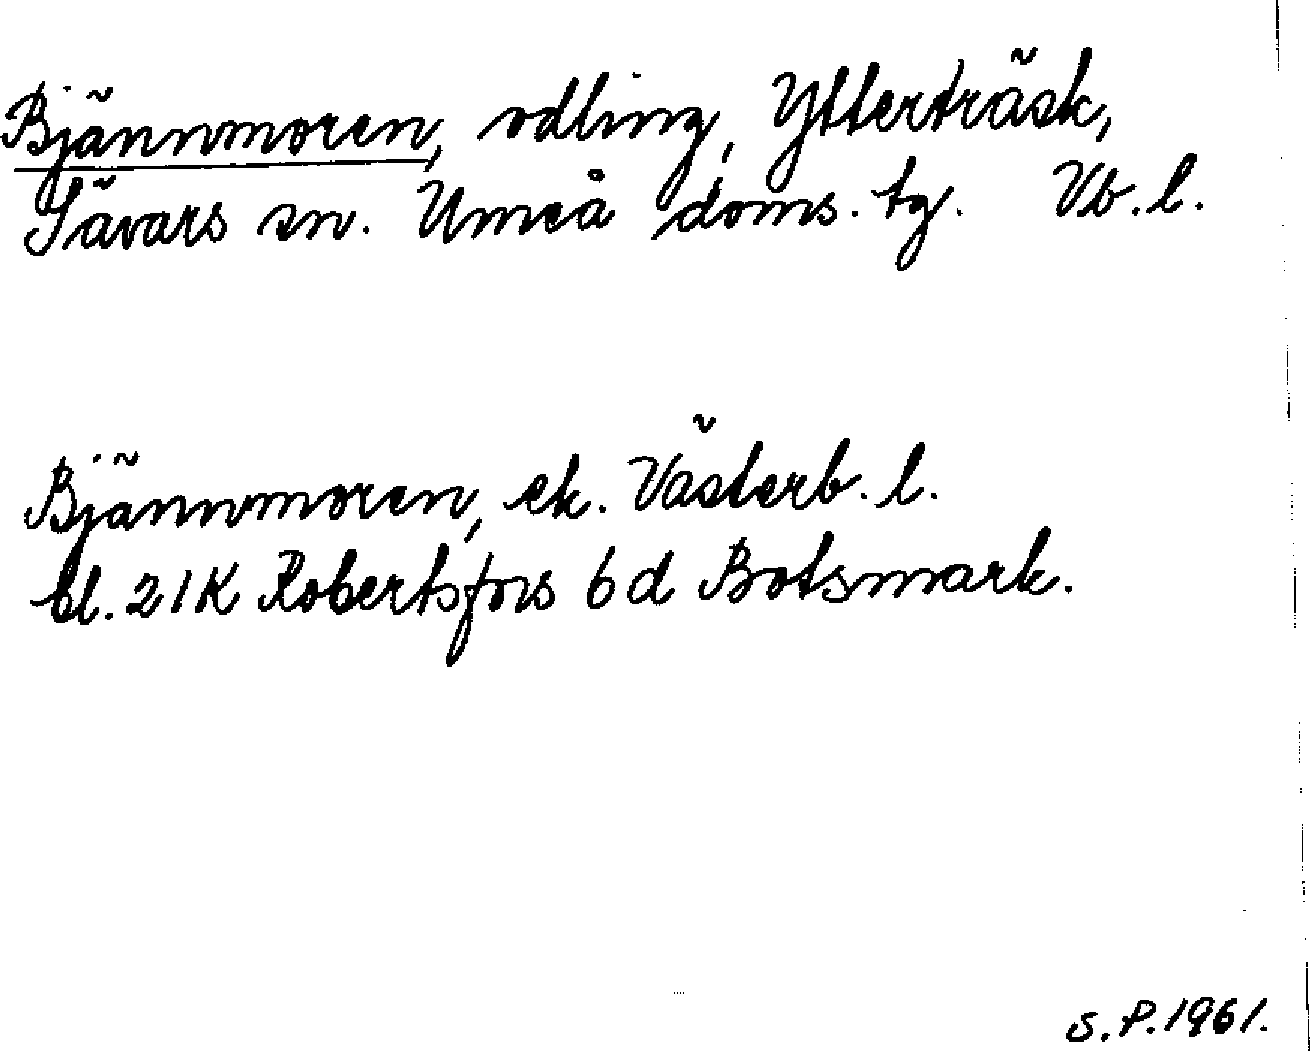 Bjännmoren, odling, Ytterträsk,
Sävars sn. Umeå doms. tg. Vb. l.
Bjännmoren, ek. Västerb. l.
bl. 21K Robertsfors 6d Botsmark.
S. P. 1961.